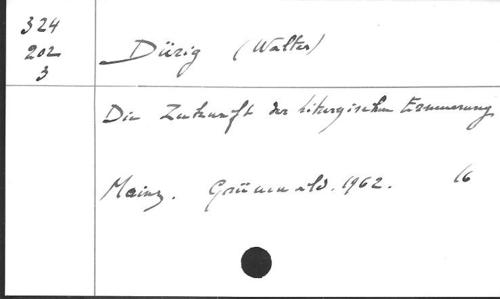 324
202
3
Dürig (Walter)
Die Zukunft der liturgischen Erneuerung
Mainz. Grünewald. 1962. 16